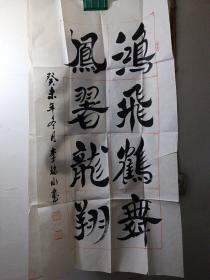 鴻飛鶴舞
鳳翥龍翔
癸未年冬月李